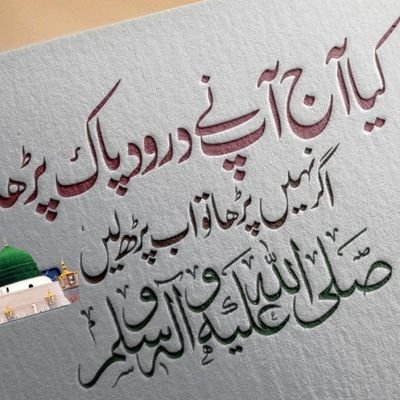 کیا آج آپ نے درود پاک پڑھا
اگر نہیں پڑھا تو اب پڑھ لیں
صَلَّی اللہُ عَلَیْہِ وَآلِہٖ وَسَلَّم